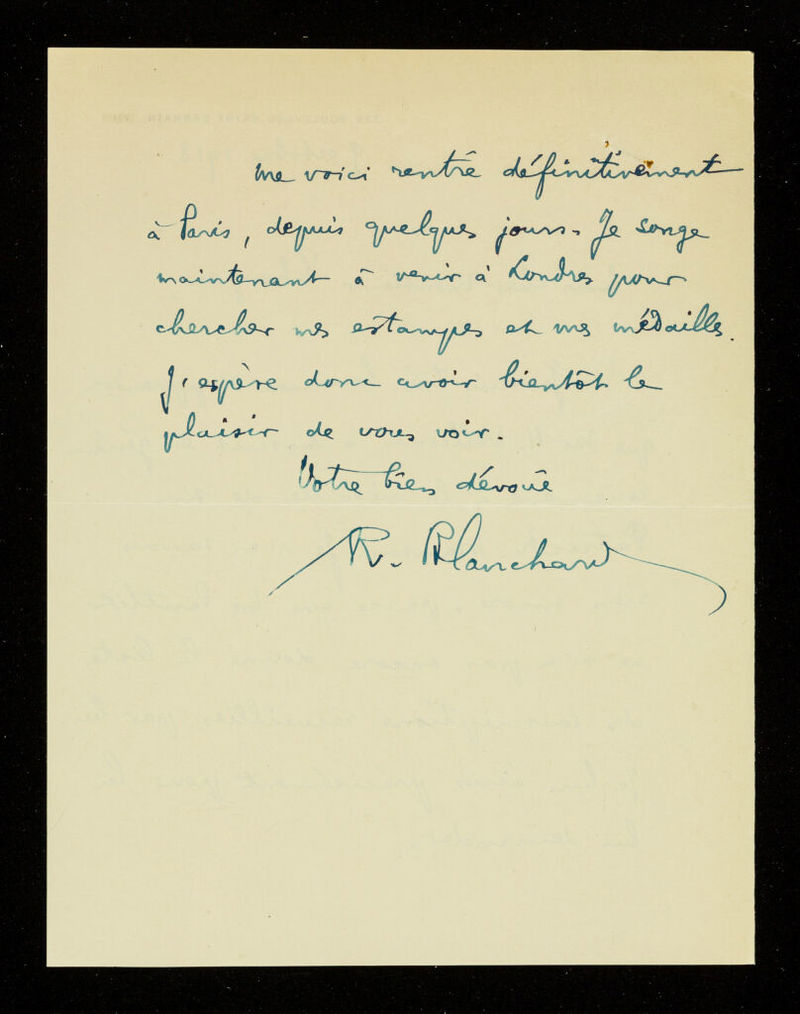 Me voici rentré définitivement
à Paris, depuis quelques jours. Je songe
maintenant à venir à Londres pour
chercher mes estampes et mes médailles.
J'espère donc avoir bientôt le
plaisir de vous voir.
Votre bien dévoué
R. Blanchard